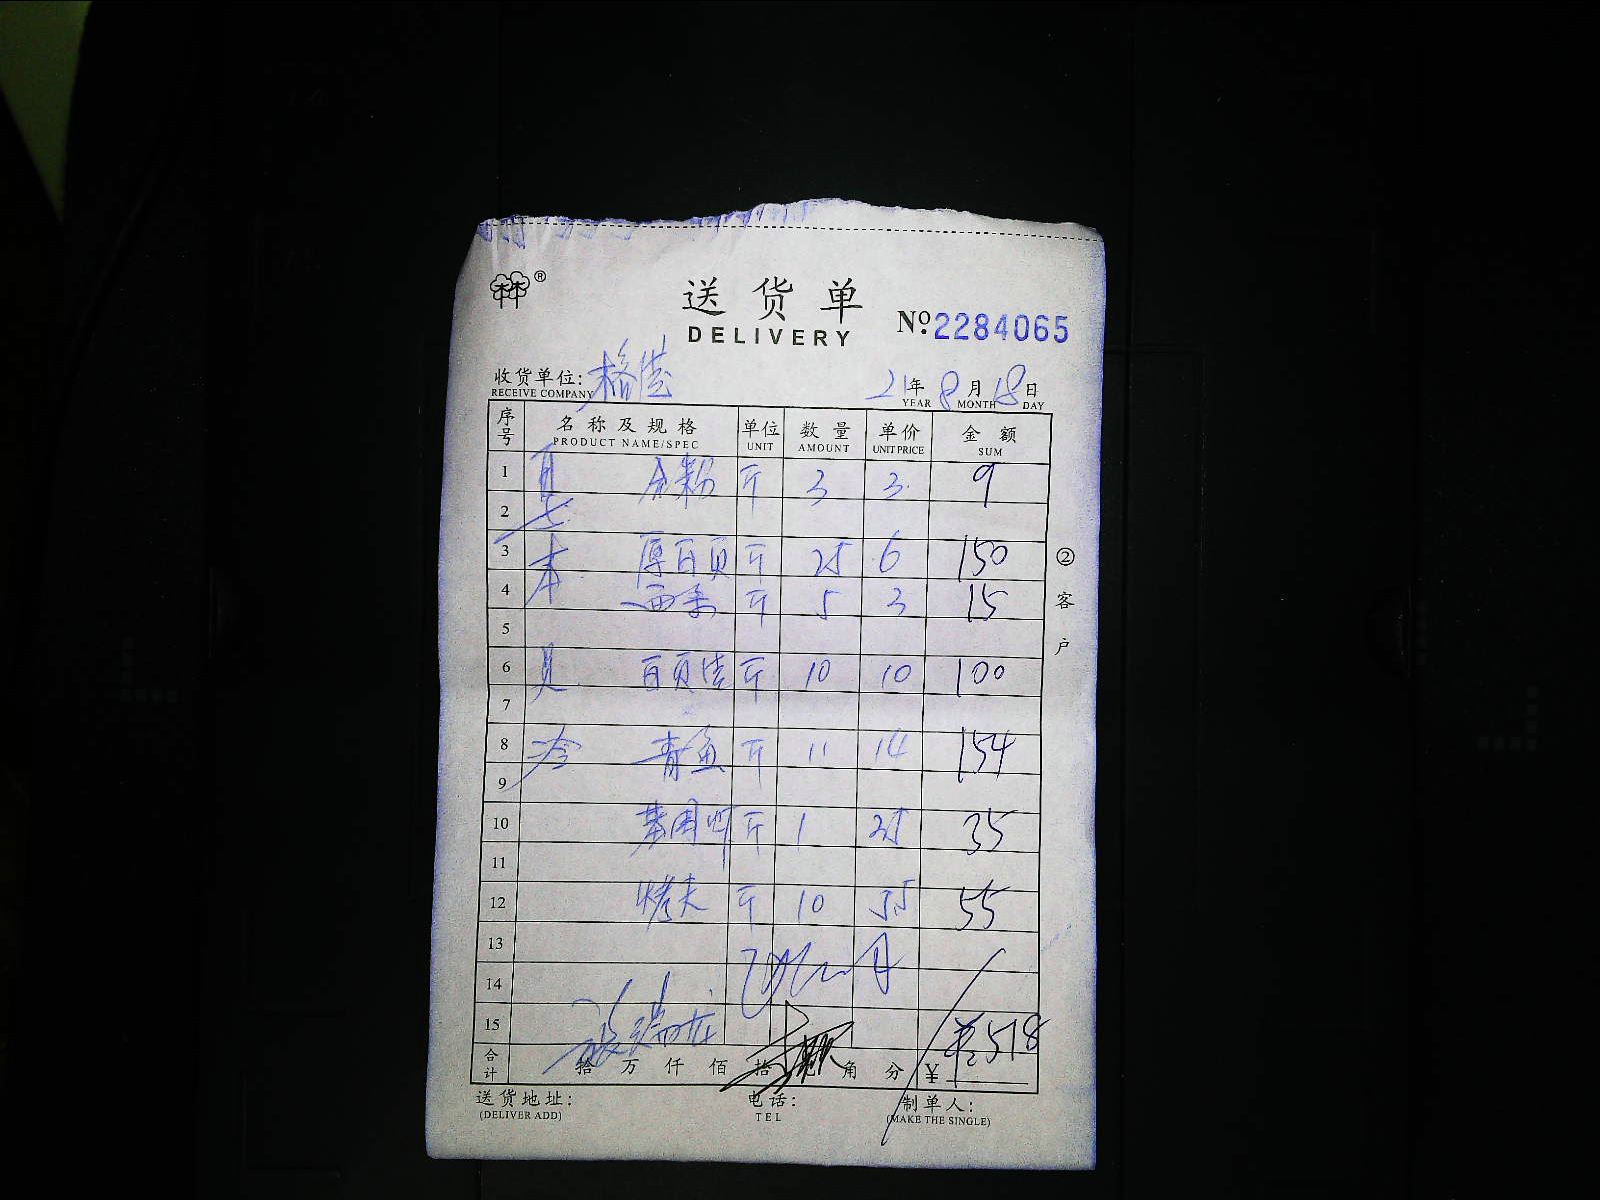 ®
送货单
DELIVERY
№ 2284065
收货单位:
RECEIVE COMPANY
21年 8月 18日
YEAR MONTH DAY
序号 名称及规格 单位 数量 单价 金额
PRODUCT NAME/SPEC UNIT AMOUNT UNIT PRICE SUM
1 斤 3 3 9
2
3 本 厚百页 斤 25 6 150
4 斤 5 3 15
5
6 百页结 斤 10 10 100
7
8 冷 青鱼 斤 11 14 154
9
10 斤 1 35 35
11
12 烤夫 斤 10 5.5 55
13
14
15
合计 拾 万 仟 佰 拾 元 角 分 ¥ 518
②客户
送货地址:
(DELIVER ADD)
电话:
TEL
制单人:
(MAKE THE SINGLE)